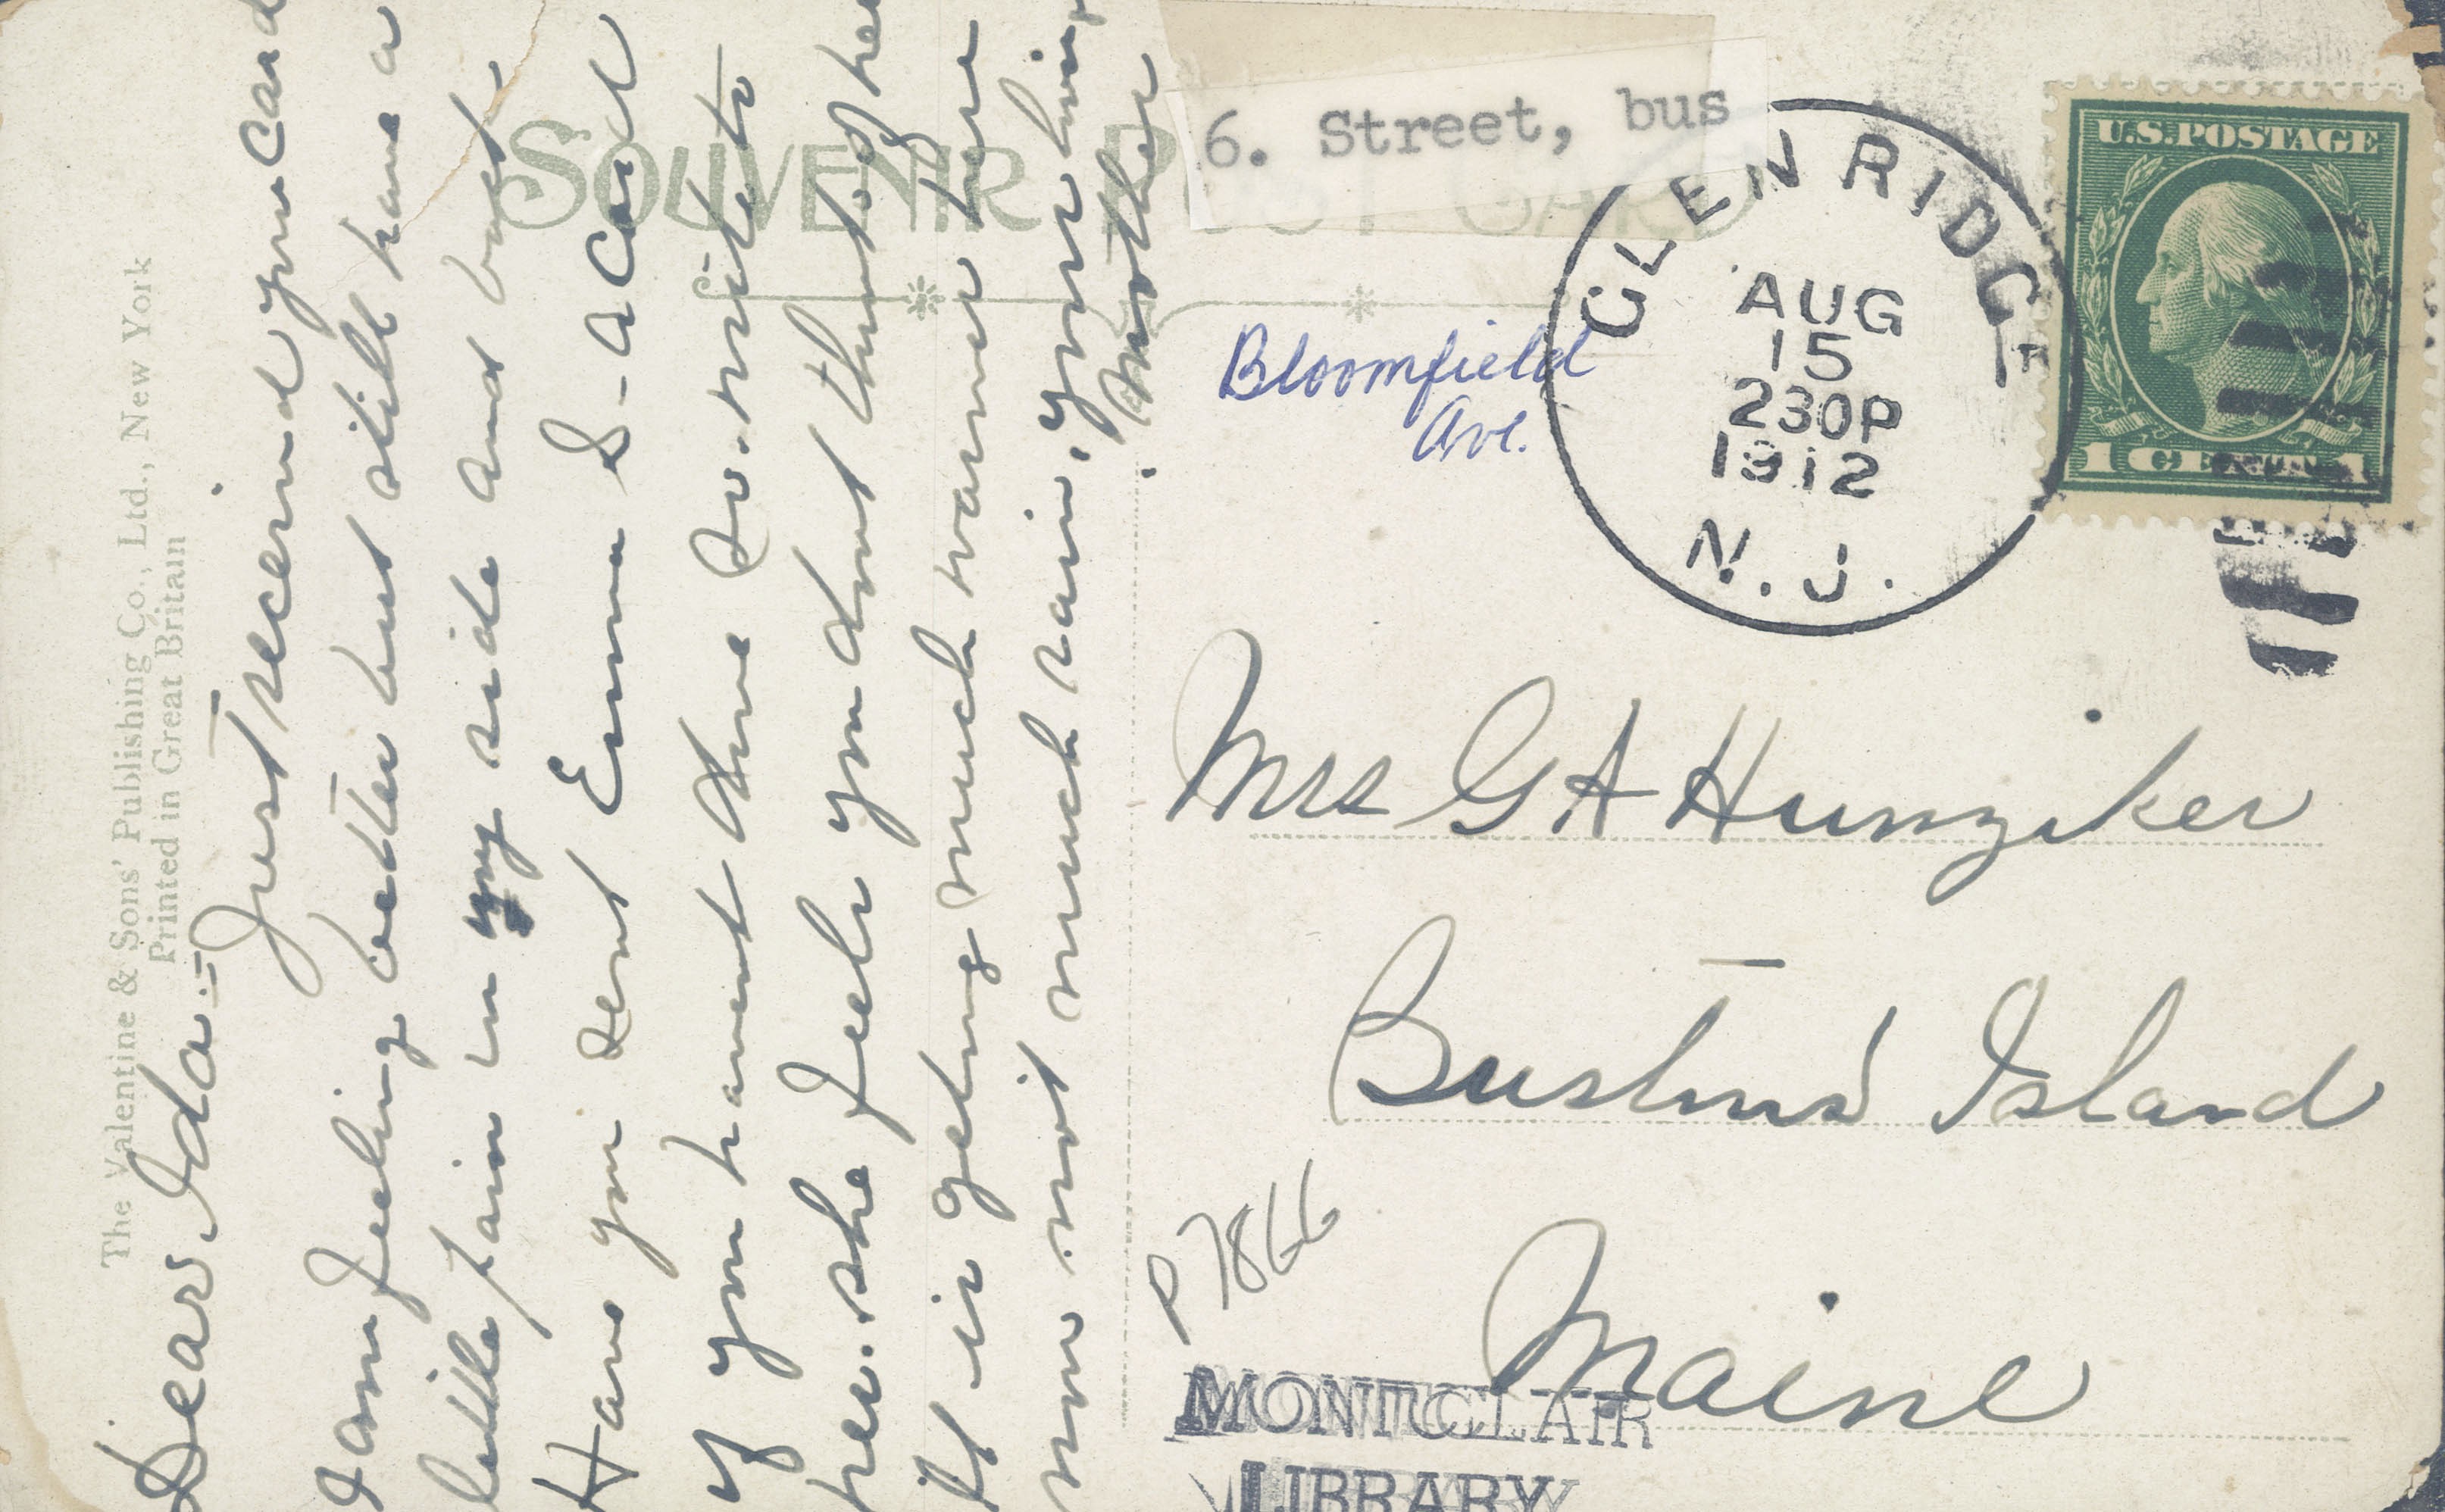 The Valentine & Sons' Publishing Co., Ltd., New York
Printed in Great Britain
SOUVENIR POST CARD
6. Street, bus
Bloomfield
Ave.
GLEN RIDGE
AUG
15
230P
1912
N.J.
U.S. POSTAGE
1 CENT 1
Dear Ida:=
Just received your card
I am feeling better but still have a
little pain in my side and back
Have you sent Emma S- a Card
if you havent done so. write to
her. she feels you dont think of her
it is geting much warmer here
now not much rain, your loving
Mother.
Mrs G A Hunziker
Bustins Island
Maine
P 7866
MONTCLAIR
LIBRARY